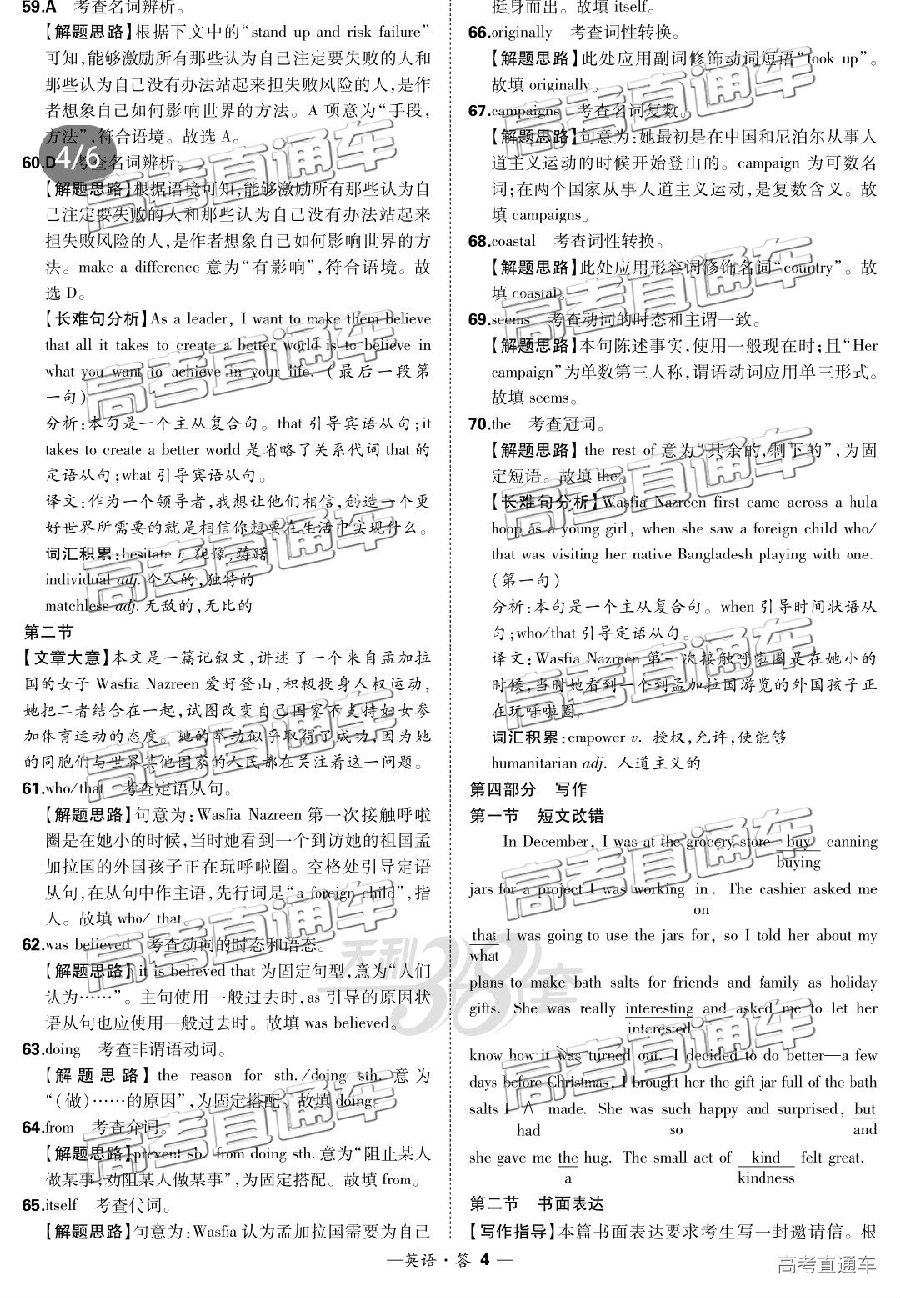 59.A 考查名词辨析。
【解题思路】根据下文中的“stand up and risk failure”
可知,能够激励所有那些认为自己注定要失败的人和
那些认为自己没有办法站起来担失败风险的人,是作
者想象自己如何影响世界的方法。A 项意为“手段,
方法”,符合语境。故选 A。
4/6
60.D 考查名词辨析。
【解题思路】根据语境可知,能够激励所有那些认为自
己注定要失败的人和那些认为自己没有办法站起来
担失败风险的人,是作者想象自己如何影响世界的方
法。make a difference 意为“有影响”,符合语境。故
选 D。
【长难句分析】As a leader, I want to make them believe
that all it takes to create a better world is to believe in
what you want to achieve in your life. (最后一段第
一句)
分析:本句是一个主从复合句。that 引导宾语从句;it
takes to create a better world 是省略了关系代词 that 的
定语从句;what 引导宾语从句。
译文:作为一个领导者,我想让他们相信,创造一个更
好世界所需要的就是相信你想要在生活中实现什么。
词汇积累:hesitate v. 犹豫,踌躇
individual adj. 个人的,独特的
matchless adj. 无敌的,无比的
第二节
【文章大意】本文是一篇记叙文,讲述了一个来自孟加拉
国的女子 Wasfia Nazreen 爱好登山,积极投身人权运动,
她把二者结合在一起,试图改变自己国家不支持妇女参
加体育运动的态度。她的举动似乎取得了成功,因为她
的同胞们与世界其他国家的人民都在关注着这一问题。
61.who/that 考查定语从句。
【解题思路】句意为:Wasfia Nazreen 第一次接触呼啦
圈是在她小的时候,当时她看到一个到访她的祖国孟
加拉国的外国孩子正在玩呼啦圈。空格处引导定语
从句,在从句中作主语,先行词是“a foreign child”,指
人。故填 who/ that。
62.was believed 考查动词的时态和语态。
【解题思路】it is believed that 为固定句型,意为“人们
认为……”。主句使用一般过去时,as 引导的原因状
语从句也应使用一般过去时。故填 was believed。
63.doing 考查非谓语动词。
【解题思路】the reason for sth. /doing sth. 意为
“(做)……的原因”,为固定搭配。故填 doing。
64.from 考查介词。
【解题思路】prevent sb. from doing sth. 意为“阻止某人
做某事,劝阻某人做某事”,为固定搭配。故填 from。
65.itself 考查代词。
【解题思路】句意为:Wasfia 认为孟加拉国需要为自己
挺身而出。故填 itself。
66.originally 考查词性转换。
【解题思路】此处应用副词修饰动词短语“took up”。
故填 originally。
67.campaigns 考查名词复数。
【解题思路】句意为:她最初是在中国和尼泊尔从事人
道主义运动的时候开始登山的。campaign 为可数名
词;在两个国家从事人道主义运动,是复数含义。故
填 campaigns。
68.coastal 考查词性转换。
【解题思路】此处应用形容词修饰名词“country”。故
填 coastal。
69.seems 考查动词的时态和主谓一致。
【解题思路】本句陈述事实,使用一般现在时;且“Her
campaign”为单数第三人称,谓语动词应用单三形式。
故填 seems。
70.the 考查冠词。
【解题思路】the rest of 意为“其余的,剩下的”,为固
定短语。故填 the。
【长难句分析】Wasfia Nazreen first came across a hula
hoop as a young girl, when she saw a foreign child who/
that was visiting her native Bangladesh playing with one.
(第一句)
分析:本句是一个主从复合句。when 引导时间状语从
句;who/that 引导定语从句。
译文:Wasfia Nazreen 第一次接触呼啦圈是在她小的
时候,当时她看到一个到孟加拉国游览的外国孩子正
在玩呼啦圈。
词汇积累:empower v. 授权,允许,使能够
humanitarian adj. 人道主义的
第四部分 写作
第一节 短文改错
In December, I was at the grocery store buy canning
buying
jars for a project I was working in. The cashier asked me
on
that I was going to use the jars for, so I told her about my
what
plans to make bath salts for friends and family as holiday
gifts. She was really interesting and asked me to let her
interested
know how it was turned out. I decided to do better—a few
days before Christmas, I brought her the gift jar full of the bath
salts I ∧ made. She was such happy and surprised, but
had so and
she gave me the hug. The small act of kind felt great.
a kindness
第二节 书面表达
【写作指导】本篇书面表达要求考生写一封邀请信。根
—英语·答 4—
高考直通车
高考直通车
天利38套